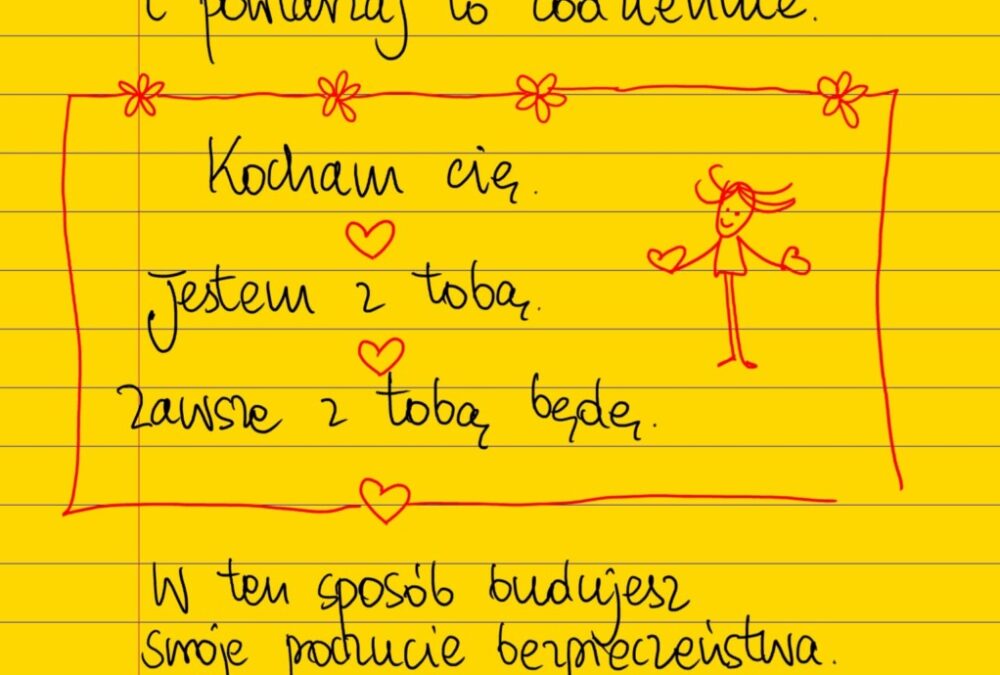 i powtarzaj to codziennie.
Kocham cię.
Jestem z tobą.
Zawsze z tobą będę.
W ten sposób budujesz
swoje poczucie bezpieczeństwa.